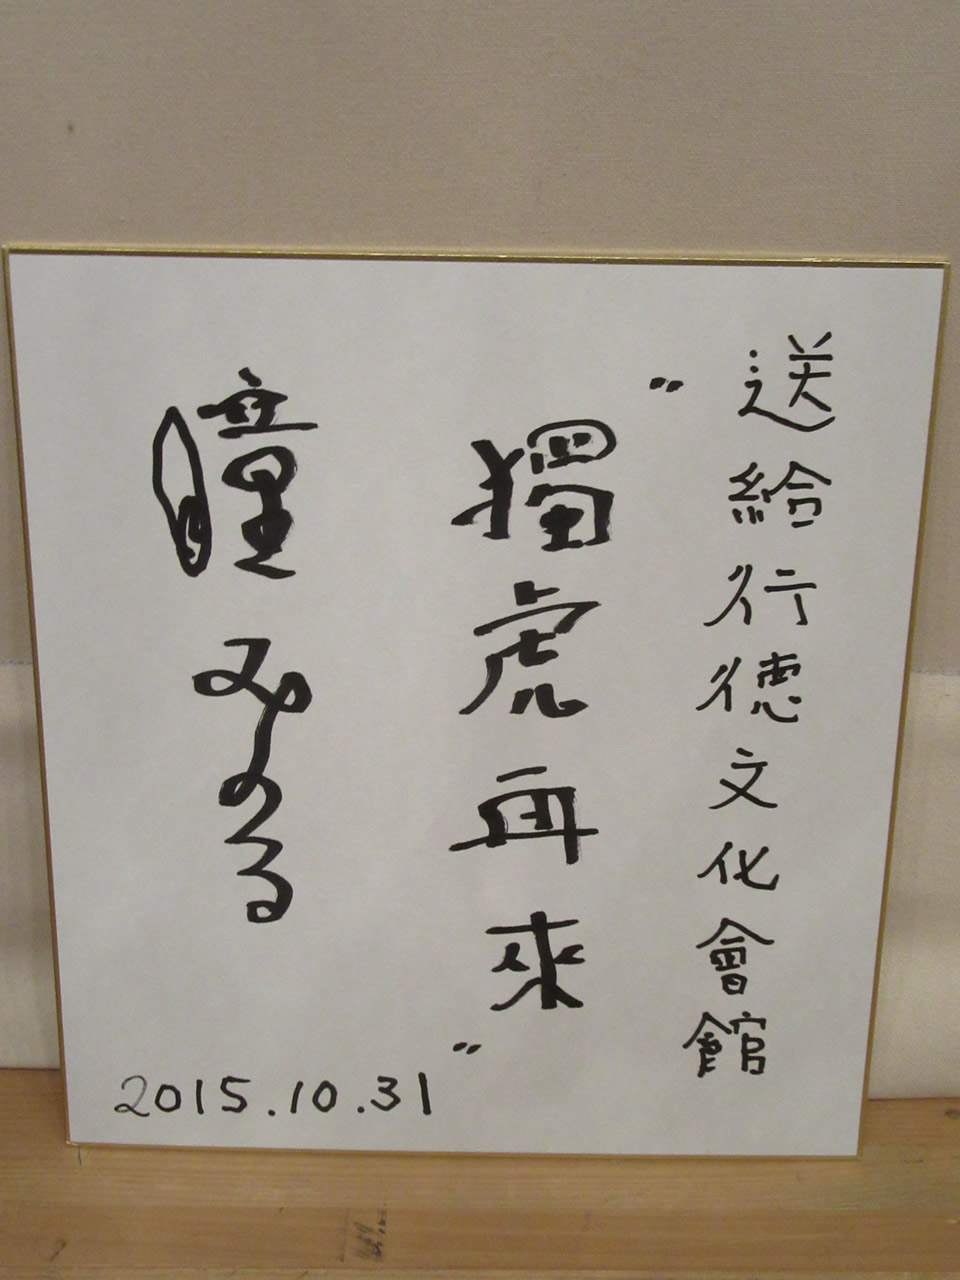 送給行徳文化會館
"獨虎再來"
瞳みのる
2015.10.31